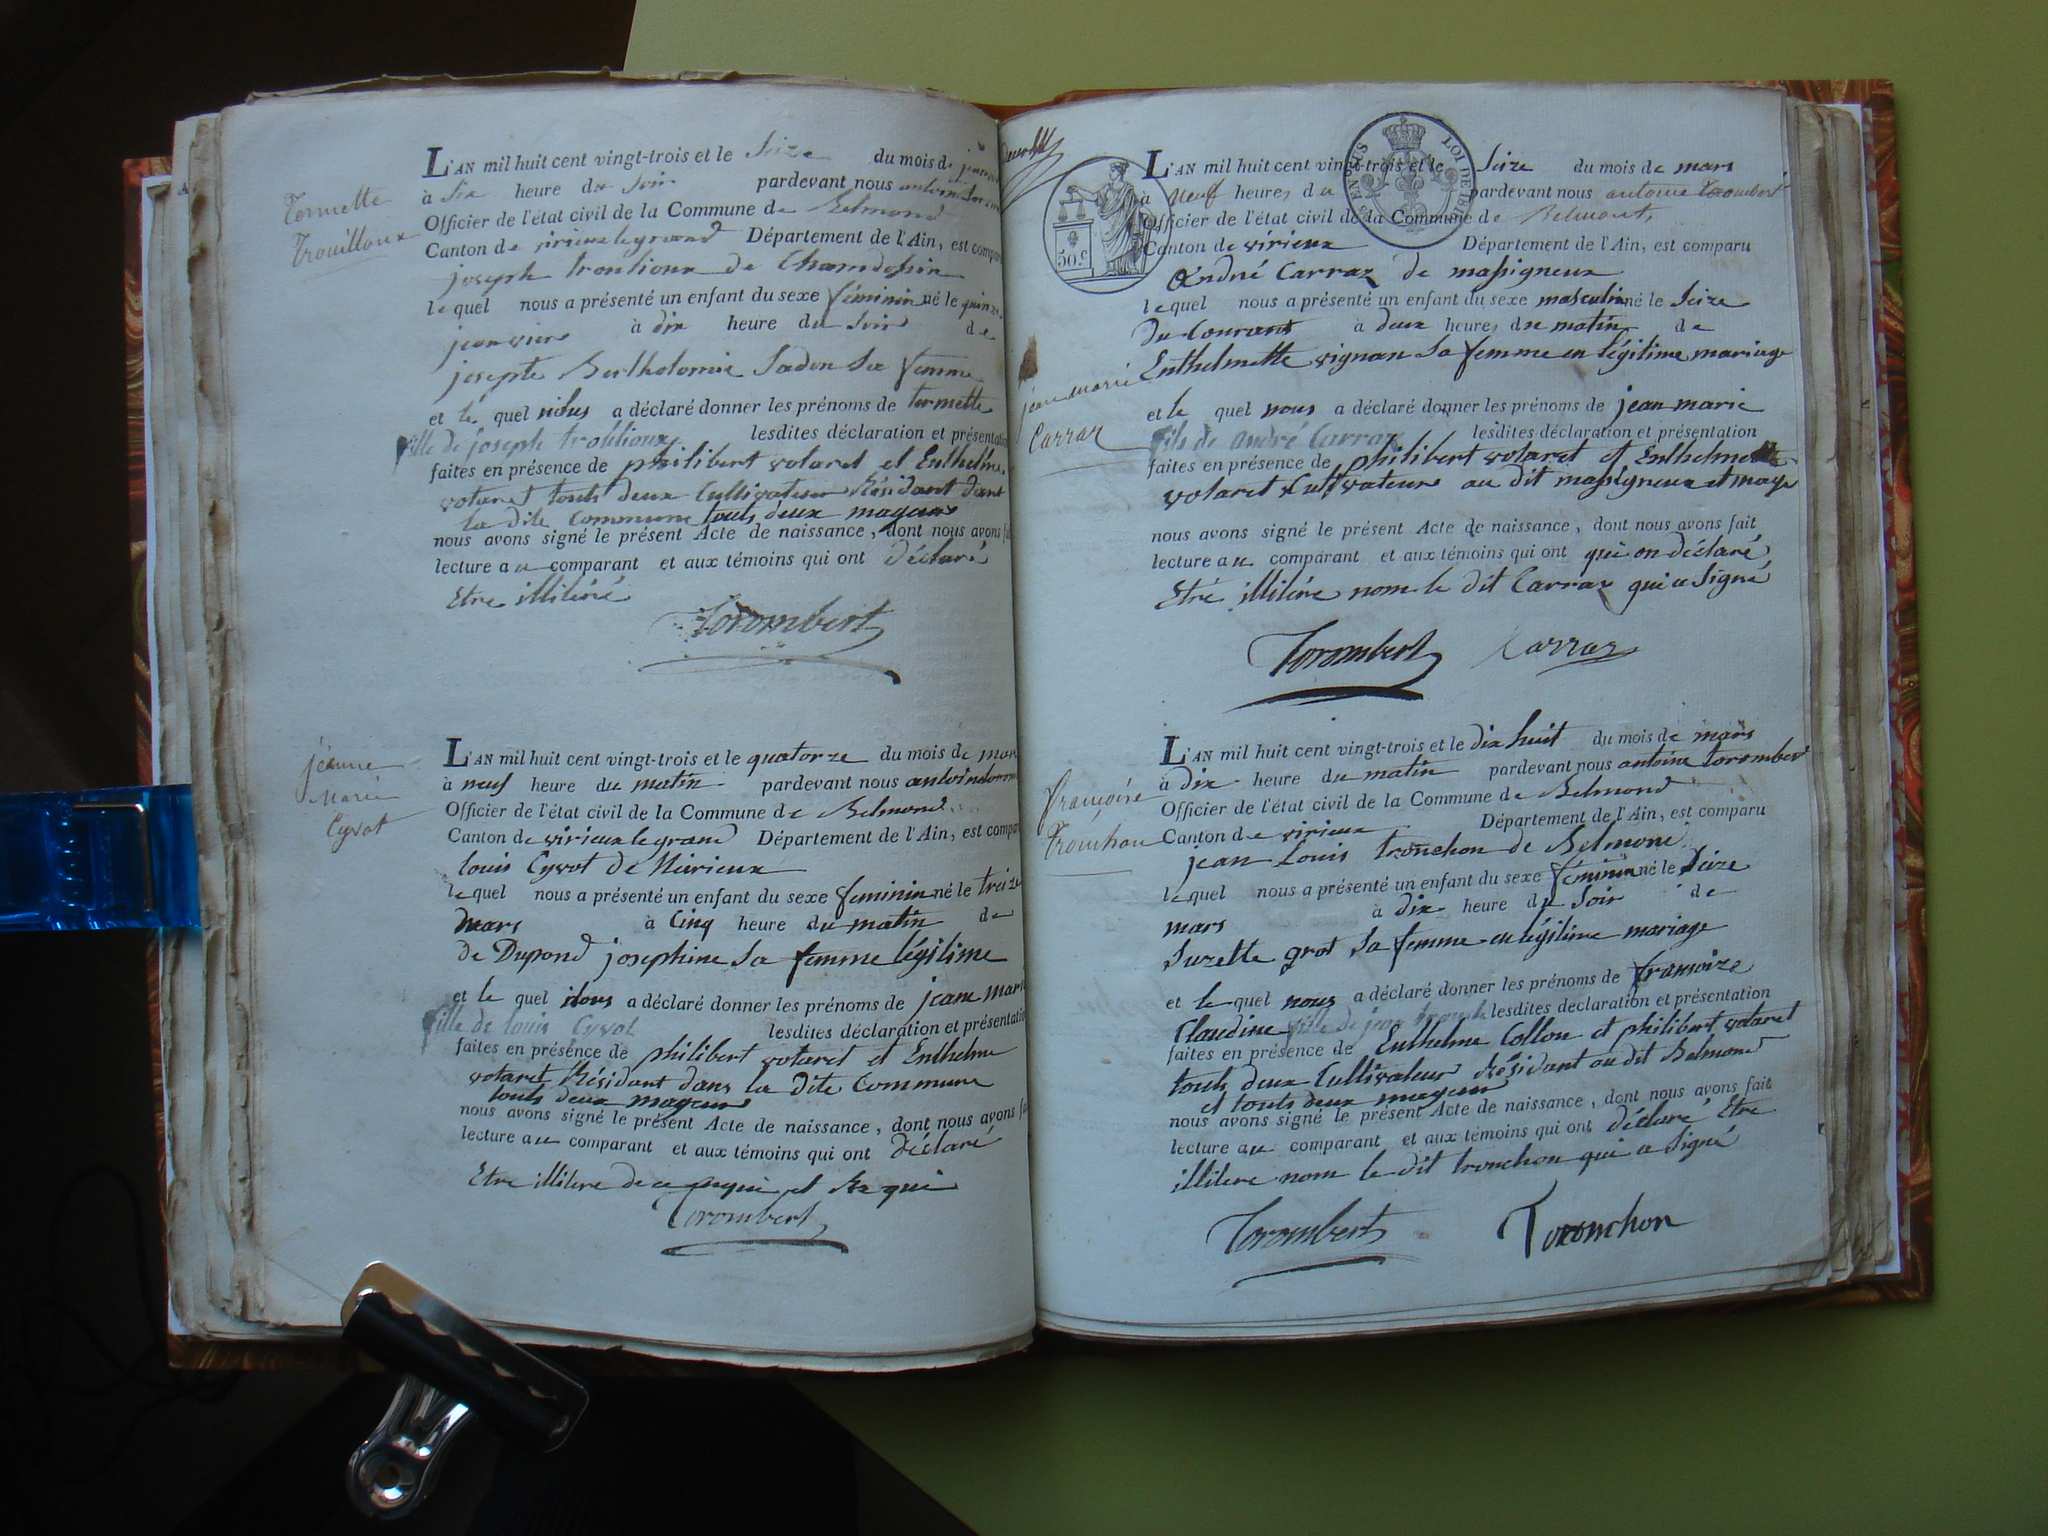 Tormette
Trouilloux
L'AN mil huit cent vingt-trois et le Seize du mois de
à Six heure du Soir pardevant nous
Officier de l'état civil de la Commune de Belmond
Canton de virieux le grand Département de l'Ain, est
joseph troulioux de
le quel nous a présenté un enfant du sexe féminin né le
janviers à dix heure du Soir de
josepte Sa femme
et le quel nous a déclaré donner les prénoms de tormette
fille de joseph lesdites déclaration et
faites en présence de philibert votaret et Enthelme
votaret touts deux Cultivateur Résidant dans
la dite Commune touts deux mageurs
nous avons signé le présent Acte de naissance, dont nous avons
lecture au comparant et aux témoins qui ont déclaré
Etre illiteré
Torombert
jeanne
Marie
Cyvot
L'AN mil huit cent vingt-trois et le quatorze du mois de
à neuf heure du matin pardevant nous
Officier de l'état civil de la Commune de Belmond
Canton de virieux le grand Département de l'Ain, est
louis Cyvot de
le quel nous a présenté un enfant du sexe feminin né le treize
mars à Cinq heure du matin de
de Dupond josephine Sa femme légitime
et le quel nous a déclaré donner les prénoms de
fille de louis Cyvot lesdites déclaration et
faites en présence de philibert votaret et Enthelme
votaret Résidant dans la dite Commune
touts deux mageurs
nous avons signé le présent Acte de naissance, dont nous avons
lecture au comparant et aux témoins qui ont déclaré
Etre illitere de ce et
Torombert
50.c
EN SUS
LOI DE
L'AN mil huit cent vingt-trois et le Seize du mois de mars
à neuf heures du pardevant nous antoine torombert
Officier de l'état civil de la Commune de Belmont
Canton de virieux Département de l'Ain, est comparu
André Carraz de massigneux
le quel nous a présenté un enfant du sexe masculin né le Seize
du Courant à deux heures du matin de
Enthelmette vignan Sa femme en légitime mariage
jean marie
Carraz
et le quel nous a déclaré donner les prénoms de jean marie
fils de andré Carraz lesdites déclaration et présentation
faites en présence de philibert votaret et
votaret Cultivateurs au dit massigneux et
nous avons signé le présent Acte de naissance, dont nous avons fait
lecture au comparant et aux témoins qui ont qui on déclaré
Etre illitére nom le dit Carraz qui a Signé
Torombert Carraz
françoise
Tronchon
L'AN mil huit cent vingt-trois et le dix huit du mois de mars
à dix heure du matin pardevant nous antoine torombert
Officier de l'état civil de la Commune de Belmond
Canton de virieux Département de l'Ain, est comparu
jean Louis tronchon de Belmond
le quel nous a présenté un enfant du sexe féminin né le Seize
mars à dix heure du Soir de
Suzette grot Sa femme en légitime mariage
et le quel nous a déclaré donner les prénoms de
Claudine fille de jean lesdites déclaration et présentation
faites en présence de Enthelme Collon et philibert votaret
touts deux Cultivateur Résidant au dit Belmond
et touts deux mageurs
nous avons signé le présent Acte de naissance, dont nous avons fait
lecture au comparant et aux témoins qui ont déclaré Etre
illitere nom le dit tronchon qui a Signé
Torombert Toronchon